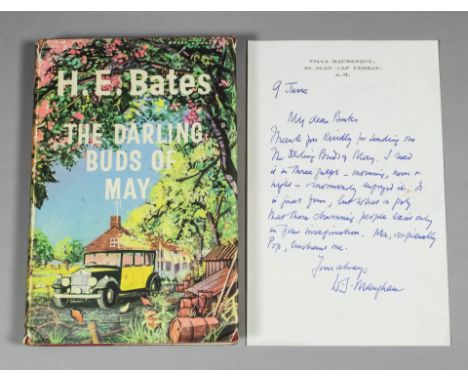 H. E. Bates
THE DARLING
BUDS OF
MAY
VILLA MAURESQUE,
ST. JEAN-CAP FERRAT,
A.M.
9 June
My dear Bates
Thank you kindly for sending me
The Darling Buds of May. I read
it in three gulps – morning, noon &
night – & enormously enjoyed it. It
is great fun, but what a pity
that those charming people exist only
in your imagination. Ma, especially
Pop, enchant me.
Yours always
W. S. Maugham